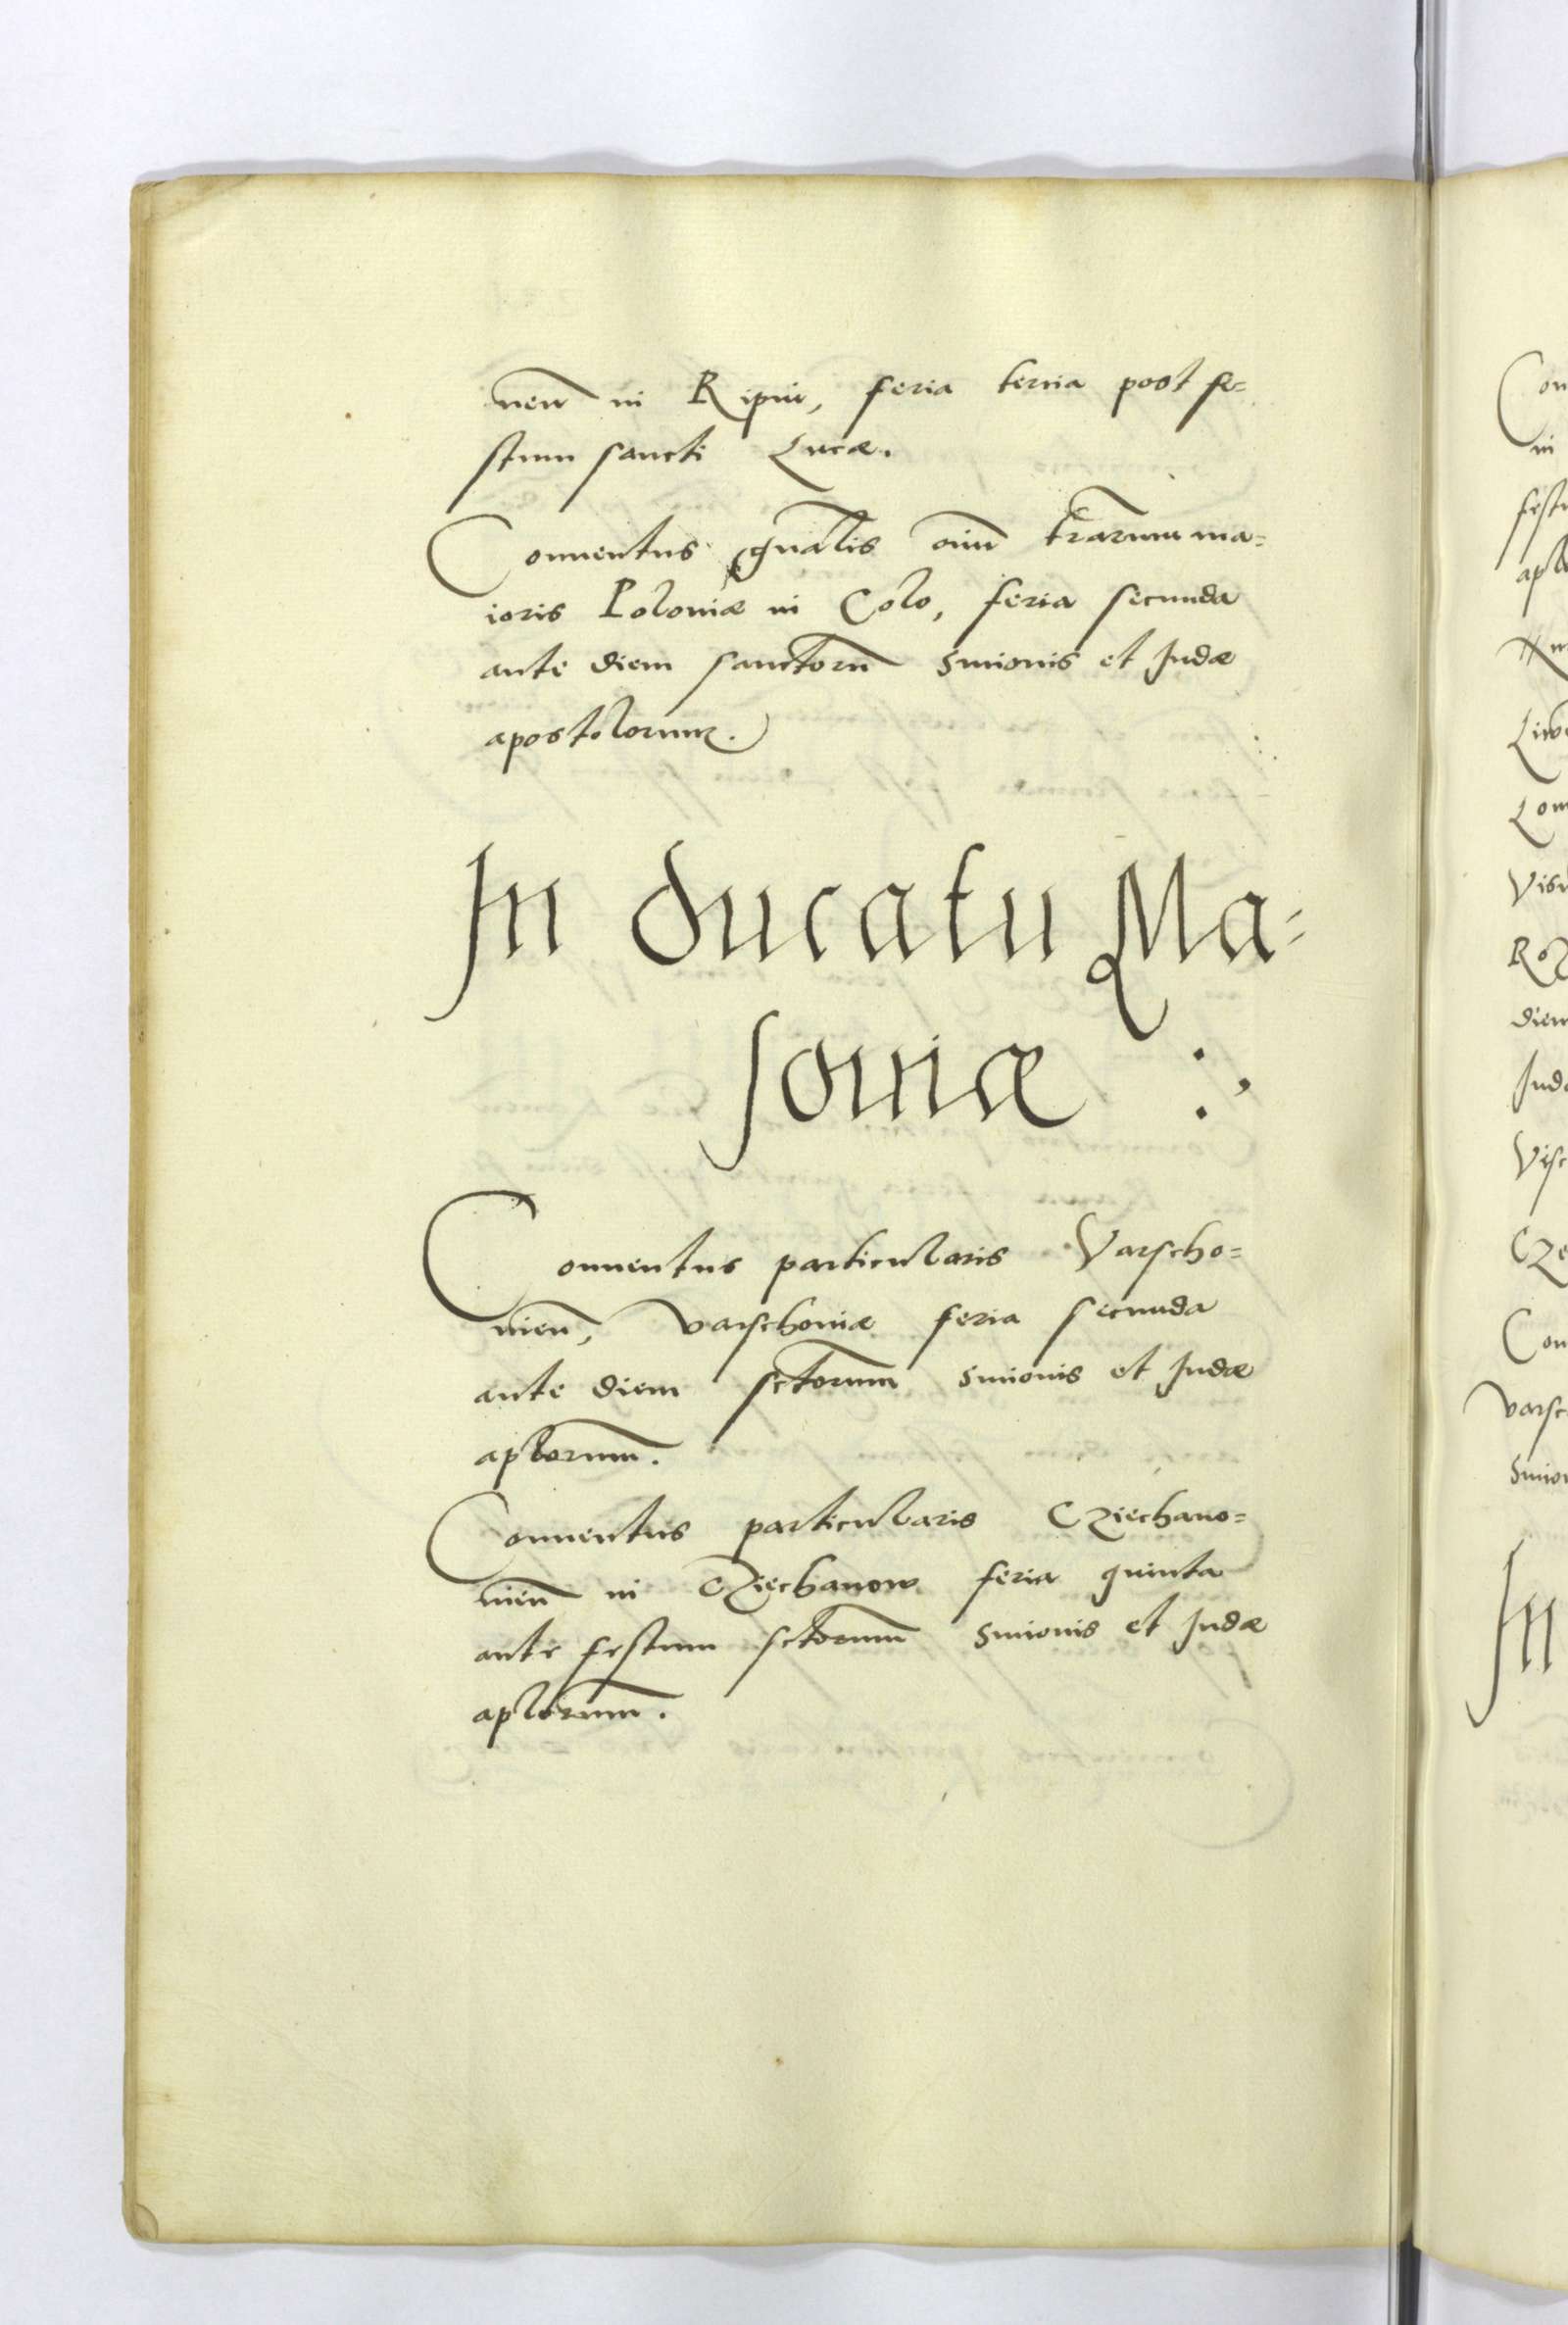 nen̄ in Ripin, feria tertia post fe=
stum sancti Lucæ.
Conuentus gn̄alis oīm tr̄arum ma=
ioris Poloniæ in Colo, feria secunda
ante diem sanctorū Simonis et Judæ
apostolorum.
In ducatu Ma=
souiæ
Conuentus particularis Varscho=
nien̄, Varschouiæ feria secunda
ante diem sctorum̄ Simonis et Judæ
aplorum̄.
Conuentus particularis Cziechano=
nien̄ in Cziechanow feria quinta
ante festum sctorum̄ Simonis et Judæ
aplorum̄.
Con
in
festu
Liw
Lom
Vis
Roz
diem
Jud
Visc
Cze
Con
Varsc
Simon
In